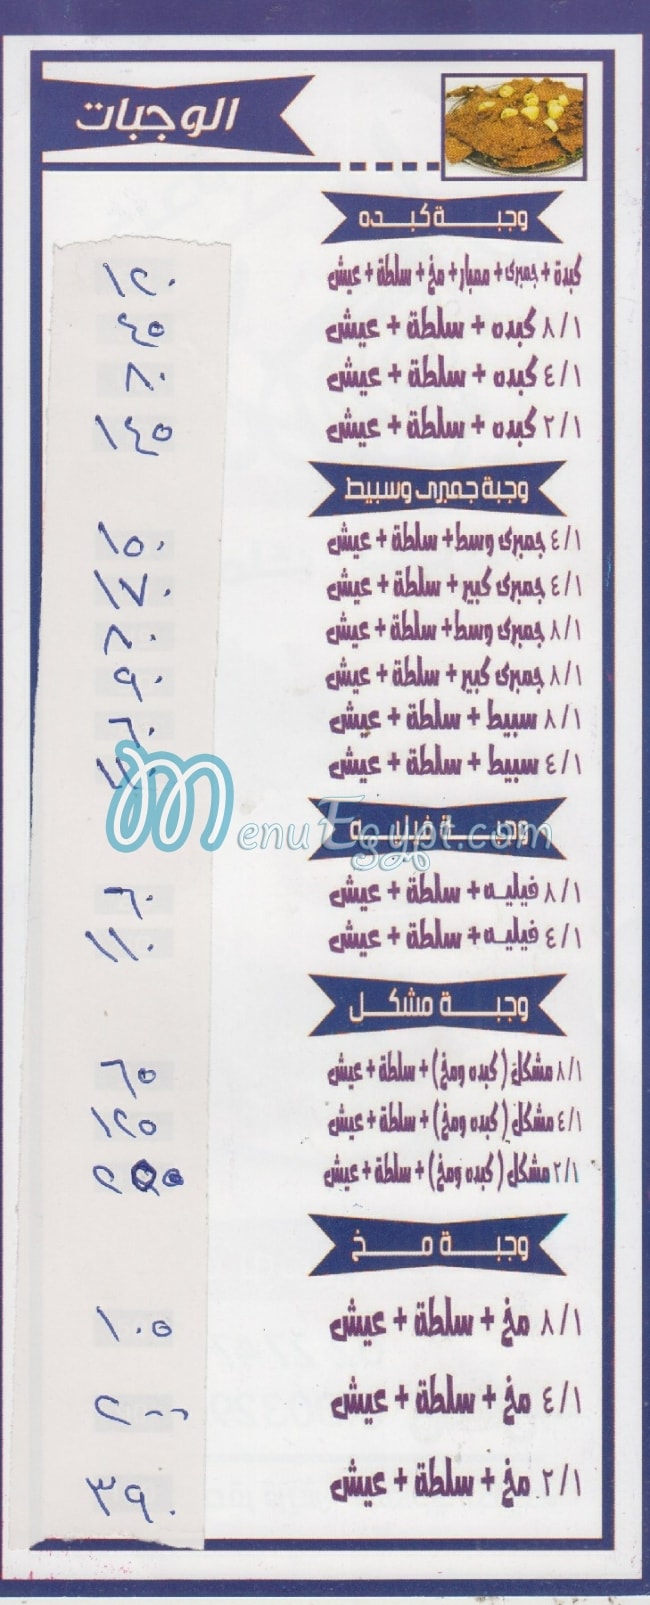 الوجبات
وجبــة كبــده
كبدة + جمبرى + ممبار + مخ + سلطة + عيش ١٢٠
٨/١ كبده + سلطة + عيش ٤٥
٤/١ كبده + سلطة + عيش ٨٠
٢/١ كبده + سلطة + عيش ١٤٥
وجبة جمبرى وسبيط
٤/١ جمبرى وسط + سلطة + عيش ١٥٠
٤/١ جمبرى كبير + سلطة + عيش ١٧٠
٨/١ جمبرى وسط + سلطة + عيش ٨٠
٨/١ جمبرى كبير + سلطة + عيش ٩٠
٨/١ سبيط + سلطة + عيش ٦٠
٤/١ سبيط + سلطة + عيش
MenuEgypt.com
وجبــة فيليــه
٨/١ فيليه + سلطة + عيش ٦٠
٤/١ فيليه + سلطة + عيش ١١٠
وجبــة مشكــل
٨/١ مشكل (كبده ومخ) + سلطة + عيش ٦٥
٤/١ مشكل (كبده ومخ) + سلطة + عيش ١٢٥
٢/١ مشكل (كبده ومخ) + سلطة + عيش
وجبــة مــخ
٨/١ مخ + سلطة + عيش ١٠٥
٤/١ مخ + سلطة + عيش ٢٠٠
٢/١ مخ + سلطة + عيش ٣٩٠